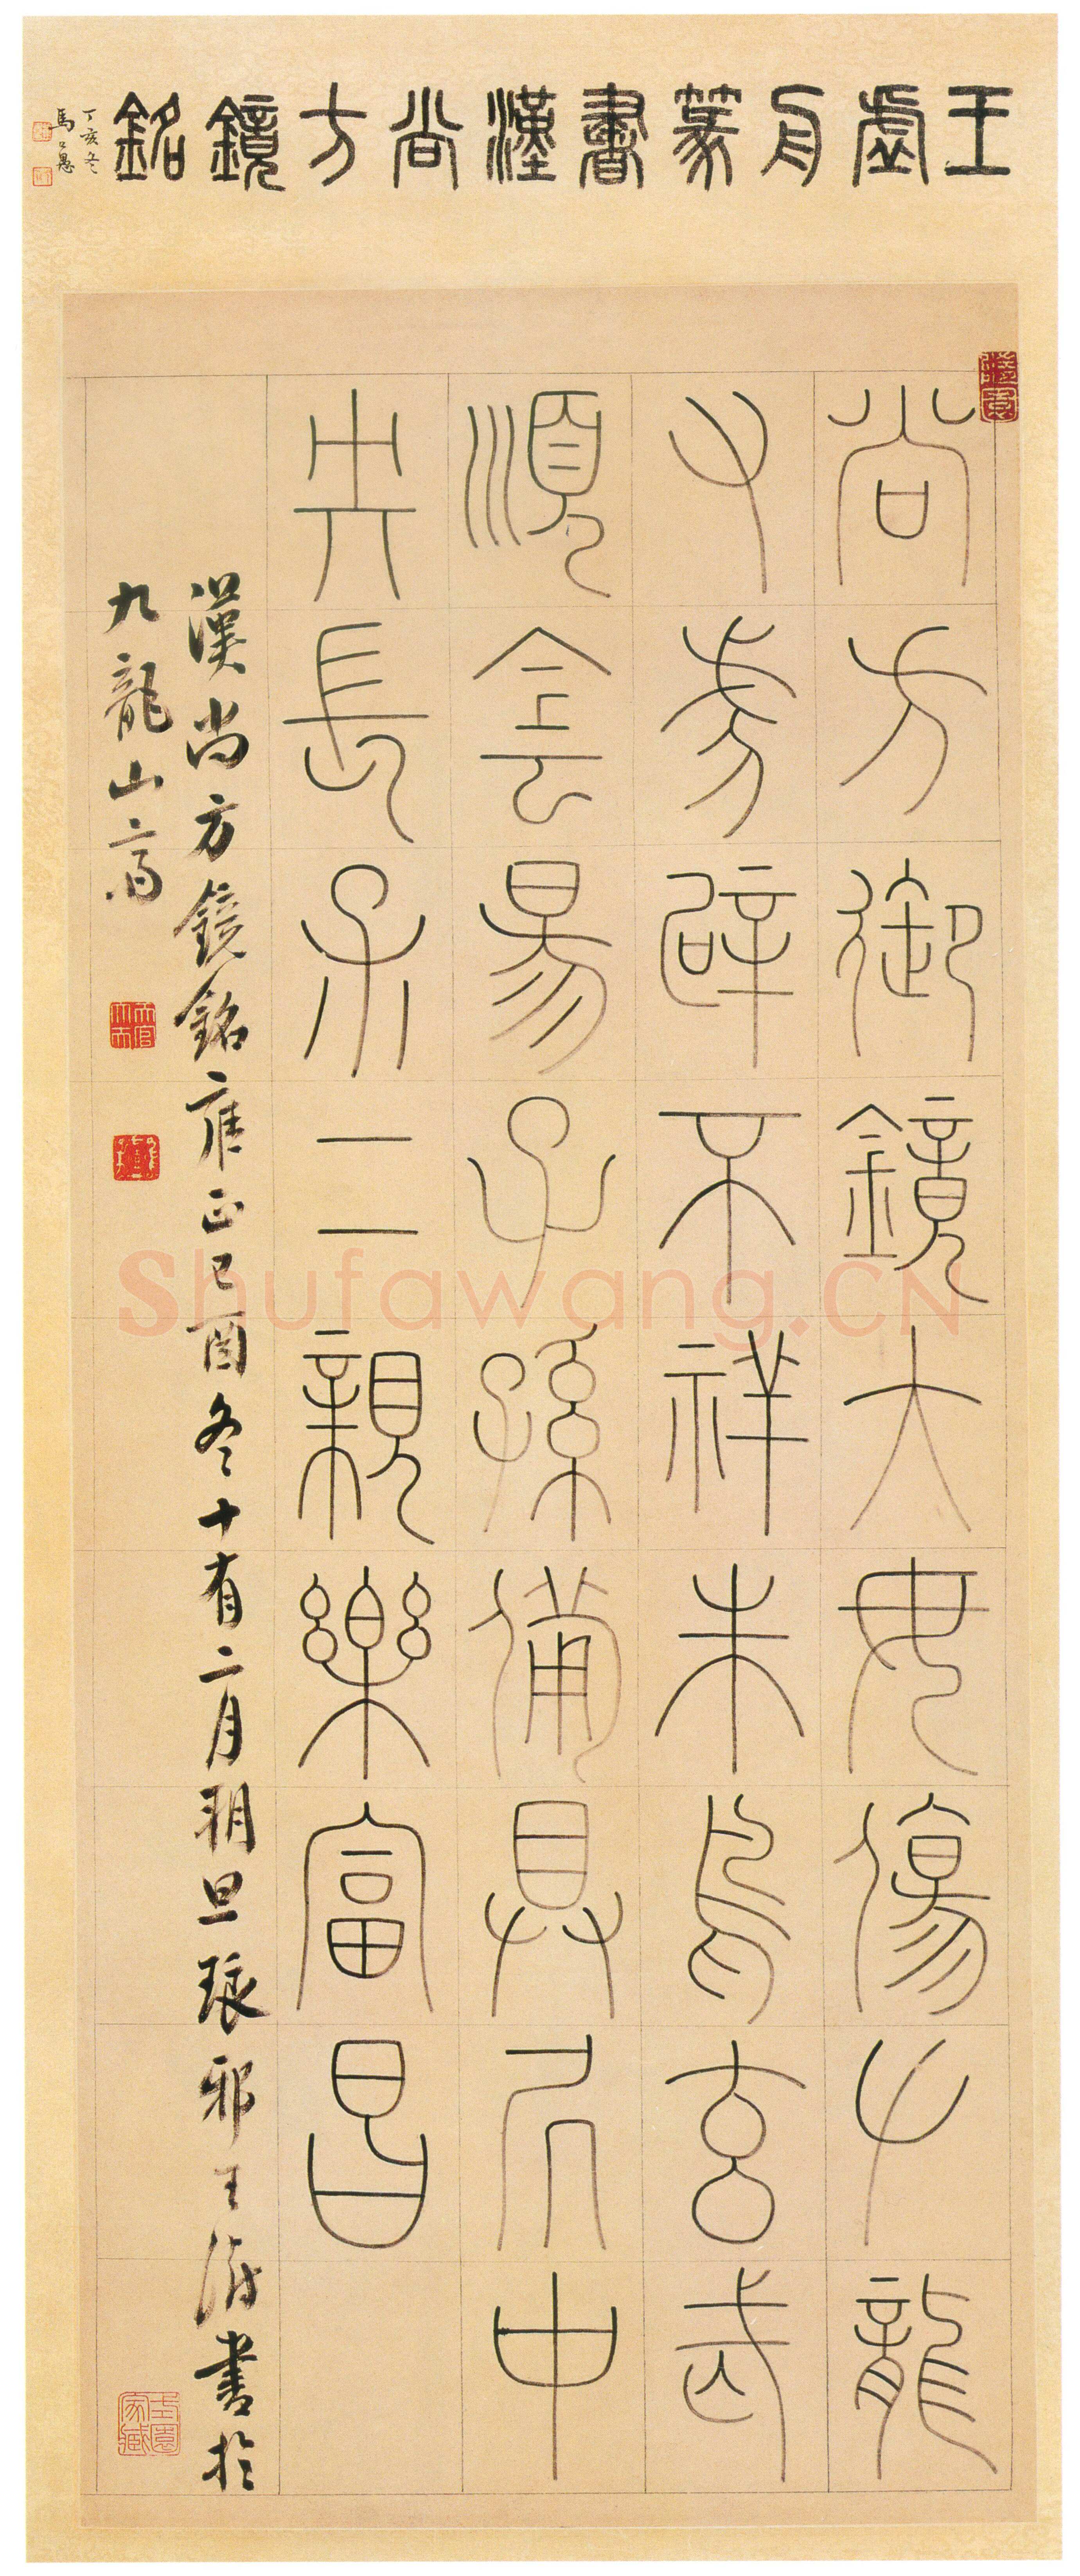 王虛舟篆書漢尚方鏡銘
丁亥冬
馬公愚
尚方御鏡大毋傷左龍
又虎辟不祥朱鳥玄武
順侌昜子孫備具凥中
央長保二親樂富昌
漢尚方鏡銘雍正己酉冬十有二月朔旦琅邪王澍書於
九龍山齋
Shufawang.CN